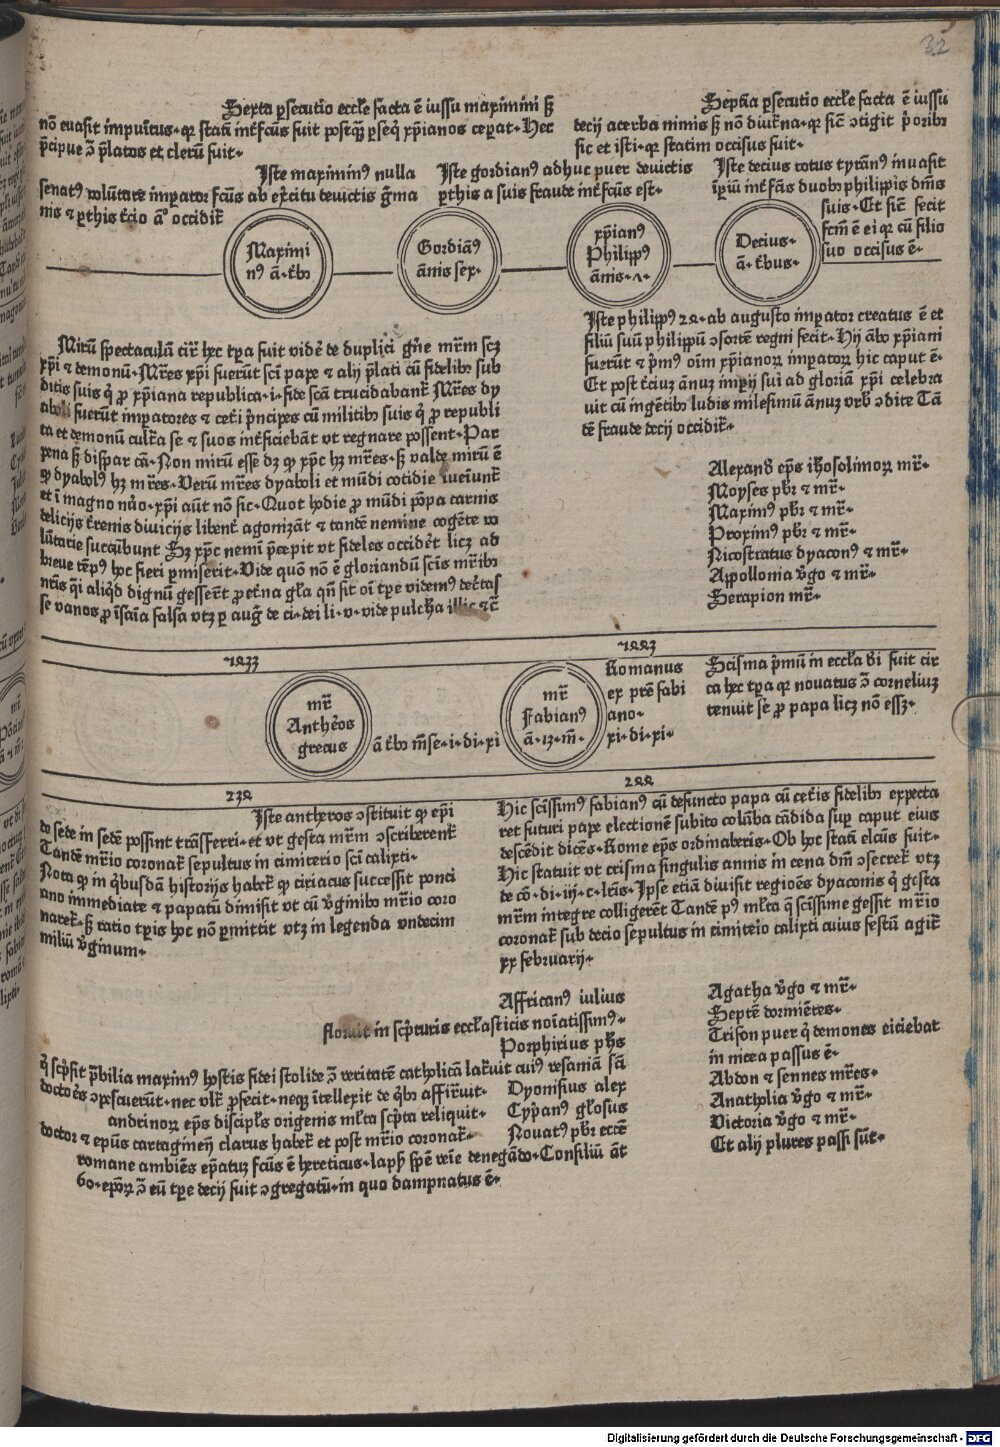 32
Sexta ꝑsecutio eccľe facta ē iussu maximini sꝫ
nō euasit impunitus·qꝛ statī intfcūs fuit postqꝫ ꝑseq̄ xp̄ianos ceꝑat·Hec
p̄cipue ↄ̄ p̄latos et clerū fuit·
Septīa ꝑsecutio eccľe facta ē iussu
decij acerba nimis sꝫ nō diut̄na·qꝛ sic̄ ↄtigit p̄orib₉
sic et isti·qꝛ statim occisus fuit·
Iste maximin₉ nulla
senat₉ volūtate imꝑator fc̄us ab ex̄citu deuictis ḡma
nis ⁊ ꝑthis t̄cio āº occidit̄
Iste gordian₉ adhuc puer deuictis
ꝑthis a suis fraude intfc̄us est·
Iste decius totus tyrān₉ inuasit
īꝑiū intfc̄is duob₉ philippis dn̄is
suis·Et sic̄ fecit
fcm̄ ē ei qꝛ cū filio
suo occisus ē·
Maximi
n₉ ā·t̄b₉
Gordiā₉
ānis sex·
xp̄ian₉
Philipp₉
ānis·ʌ·
Decius·
ā·t̄bus·
Iste philipp₉ 2ꝝ·ab augusto imꝑator creatus ē et
filiū suū philippū ↄsortē regni fecit·Hij ābo xp̄iani
fuerūt ⁊ p̄m₉ oīm xp̄ianoꝝ imꝑatoꝝ hic caput ē·
Et post t̄ciuꝫ ānuꝫ imꝑij sui ad gloriā xp̄i celebra
uit cū ingētib₉ ludis milesimū ānuꝫ vrb₉ ↄdite Tā
dē fraude decij occidit̄·
Mirū spectaculū circ̄ hec tꝑa fuit vidē de duplici gn̄e mr̄m scꝫ
xp̄i ⁊ demonū·Mr̄es xp̄i fuerūt sc̄i pape ⁊ alij p̄lati cū fidelib₉ sub
ditis suis q̄ ꝓ xp̄iana republica·i·fide sc̄a trucidabant̄ Mr̄es dy
aboli fuerūt imꝑatores ⁊ cet̄i p̄ncipes cū militib₉ suis q̄ ꝓ republi
ca et demonū cult̄a se ⁊ suos intficiebāt vt regnare possent·Par
pena sꝫ dispar cā·Non mirū esse dꝫ qꝙ xp̄c hꝫ mr̄es·sꝫ valde mirū ē
qꝙ dyabol₉ hꝫ mr̄es·Verū mr̄es dyaboli et mūdi cotidie iueniunt̄
et ī magno nūo·xp̄i aūt nō sic·Quot hodie ꝓ mūdi pōpa carnis
delicijs t̄renis diuicijs libent̄ agonizāt ⁊ tandē nemine cogēte vo
lūtarie succūbunt Sꝫ xp̄c nemī p̄cepit vt fideles occidēt licꝫ ad
breue tēp₉ hoc fieri ꝑmiserit·Vide quō nō ē gloriandū sc̄is mr̄ib₉
ntīs q̄i aliqd dignū gesserēt ꝓ et̄na gl̄a qn̄ sit oī tꝑe videm₉ dect̄as
se vanos ꝓ īsaīa falsa vtꝫ ꝑ auḡ de ci·dei li·v·vide pulchr̄a illic ⁊c̄
Alexand̄ ep̄s ih̄osolimoꝝ mr̄·
Moyses pb̄r ⁊ mr̄·
Maxim₉ pb̄r ⁊ mr̄·
Proxim₉ pb̄r ⁊ mr̄·
Nicostratus dyacon₉ ⁊ mr̄·
Appollonia v̄go ⁊ mr̄·
Serapion mr̄·
mr̄
Anther̄os
grecus
ā t̄b₉ m̄se·i·di·xi
mr̄
Fabian₉
ā·13·m̄·
Romanus
ex prē fabi
ano·
xi·di·xi·
Scisma p̄mū in eccl̄a d̄i fuit cir
ca hec tꝑa qꝛ nouatus ↄ̄ corneliuꝫ
tenuit se ꝓ papa licꝫ nō essꝫ·
Iste antheros ↄstituit qꝙ ep̄i
de sede in sedē possint trāsferri·et vt gesta mr̄m ↄscriberent̄
Tandē mr̄io coronat̄ sepultus in cimiterio sc̄i calixti·
Nota qꝙ in q̄busdā historijs habet̄ qꝙ ciriacus successit ponci
ano immediate ⁊ papatū dimisit vt cū v̄ginib₉ mr̄io coro
naret̄·sꝫ ratio tꝑis hoc nō ꝑmittit vtꝫ in legenda vndecim
miliū v̄ginum·
Hic sc̄issim₉ fabian₉ cū defuncto papa cū cet̄is fidelib₉ expecta
ret futuri pape electionē subito colūba cādida suꝑ caput eius
descēdit dicēs·Rome ep̄s ordinaberis·Ob hoc statī elc̄us fuit·
Hic statuit vt crisma singulis annis in cena dn̄i ↄsecret̄ vtꝫ
de cō·di·iij·c·lr̄is·Ipse etiā diuisit regiōes dyaconis q̄ gesta
mr̄m integre colligerēt Tandē p₉ ml̄ta q̄ sc̄issime gessit mr̄io
coronat̄ sub decio sepultus in cimit̄eio calixti cuius festū agit̄
xx februarij·
Affrican₉ iulius
floruit in sc̄pturis eccl̄asticis noīatissim₉·
Porphirius ph̄s
q̄ sc̄psit p̄bilia maxim₉ hostis fidei stolide ↄ̄ veritatē catholicā lat̄uit cui₉ vesaniā sc̄i
doctōes ↄpescuerūt·nec vlt̄ ꝓfecit·neqꝫ ītellexit de q̄b₉ affirmuit·
Dyonisius alex
andrinoꝝ ep̄s discipl̄s origenis ml̄ta sc̄pta reliquit·
Cyp̄an₉ gl̄osus
doctor ⁊ ep̄us cartaginen̄ clarus habet̄ et post mr̄io coronat̄·
Nouat₉ pb̄r eccē
romane ambiēs ep̄atuꝫ fc̄us ē hereticus·laps₉ spē veīe denegādo·Consiliū āt
60·ep̄oꝝ ↄ̄ eū tꝑe decij fuit ↄgregatū·in quo dampnatus ē·
Agatha v̄go ⁊ mr̄·
Septē dormiētes·
Trifon puer q̄ demones eiciebat
in nicea passus ē·
Abdon ⁊ sennes mr̄es·
Anatholia v̄go ⁊ mr̄·
Victoria v̄go ⁊ mr̄·
Et alij plures passi sūt·
Digitalisierung gefördert durch die Deutsche Forschungsgemeinschaft - DFG